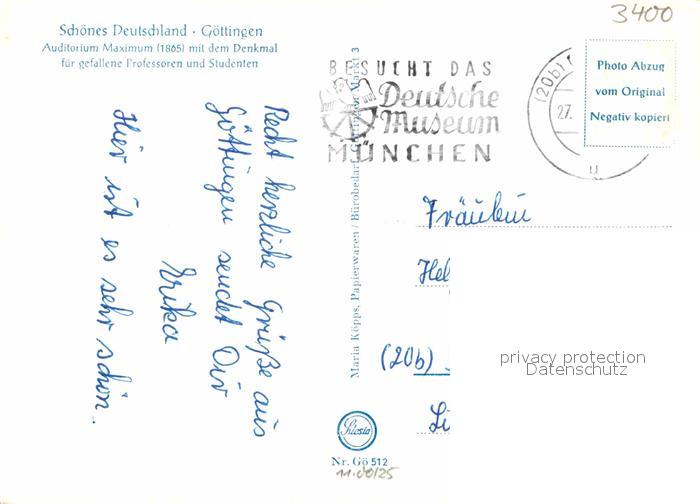 3400
Schönes Deutschland · Göttingen
Auditorium Maximum (1865) mit dem Denkmal
für gefallene Professoren und Studenten
BESUCHT DAS
Deutsche
Museum
MÜNCHEN
(20b)
27.
u
Photo Abzug
vom Original
Negativ kopiert
Recht herzliche Grüße aus
Göttingen sendet Dir
Erika
Hier ist es sehr schön.
Maria Köpps, Papierwaren / Bürobedarf, Markt 3
Fräulein
Hel
(20b)
Li
privacy protection
Datenschutz
Nr. Gö 512
11.00/25